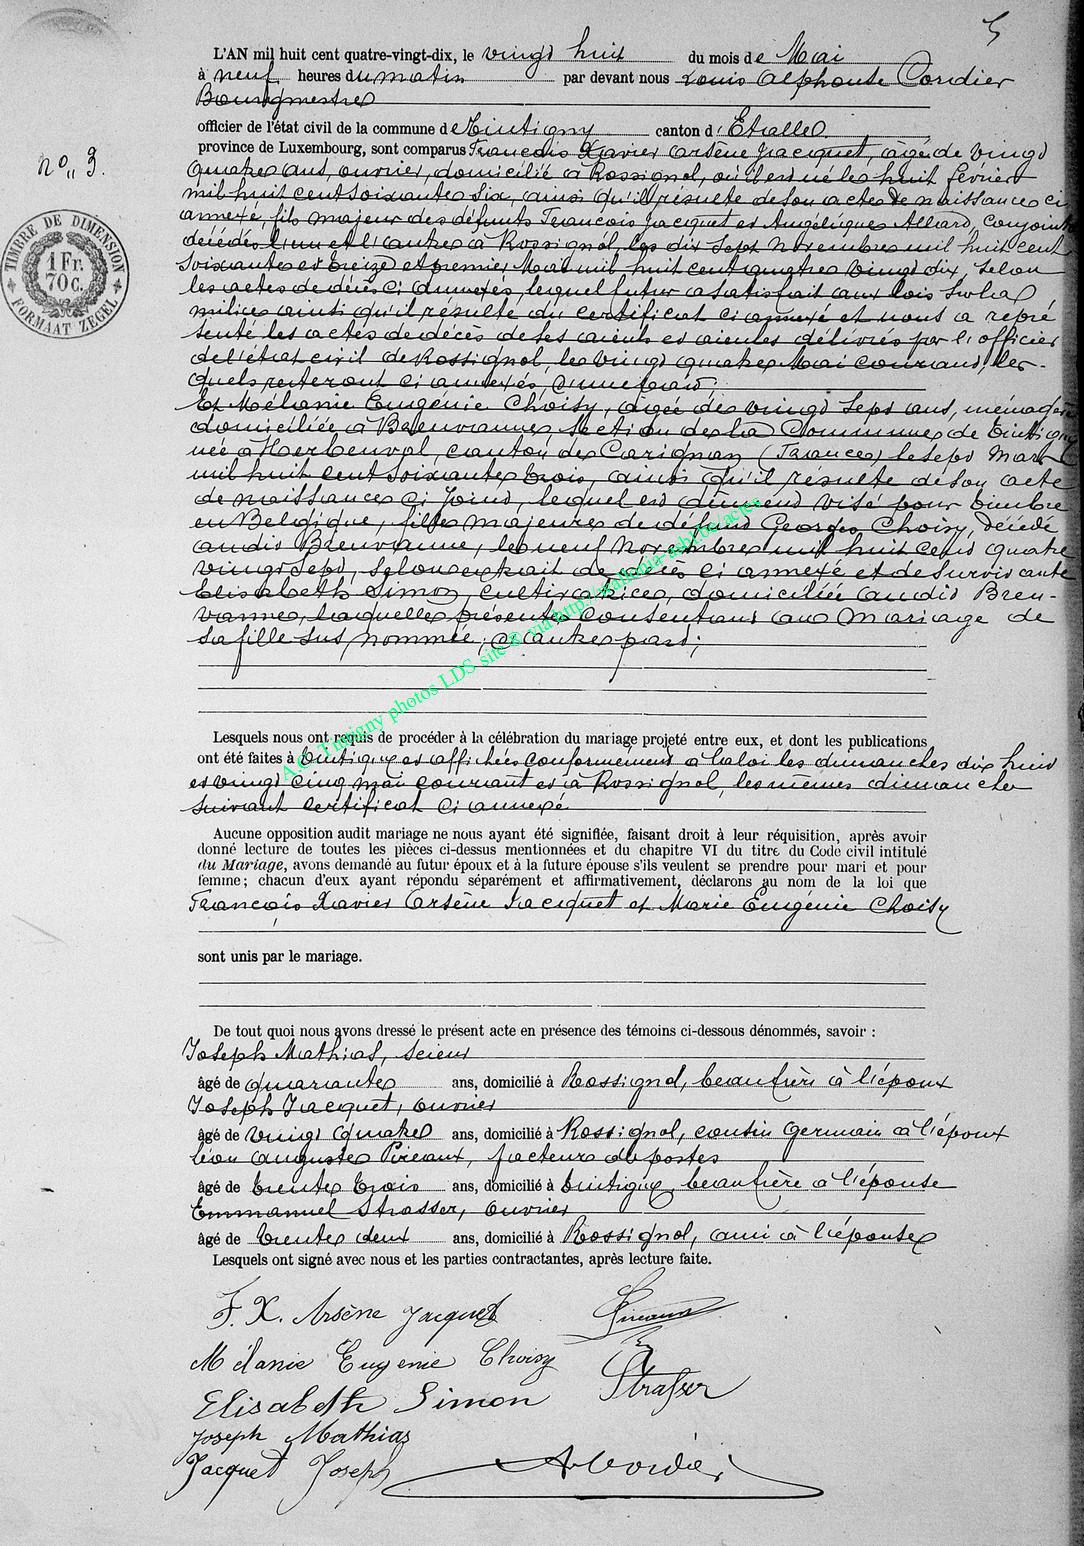 5
L'AN mil huit cent quatre-vingt-dix, le vingt huit du mois de Mai
à neuf heures du matin par devant nous Louis Alphonse Cordier
Bourgmestre
officier de l'état civil de la commune de Tintigny canton d'Etalle
province de Luxembourg, sont comparus François Xavier Arsène Jacquet, âgé de vingt
quatre ans, ouvrier, domicilié à Rossignol, où il est né le huit février
mil huit cent soixante six, ainsi qu'il résulte de son acte de naissance ci
annexé, fils majeur des défunts François Jacquet et Angélique Allard, conjoints
décédés l'un et l'autre à Rossignol, les dix sept novembre mil huit cent
soixante et treize et premier Mai mil huit cent quatre vingt dix, selon
les actes de décès ci annexés, lequel futur a satisfait aux lois sur la
milice ainsi qu'il résulte du certificat ci annexé et nous a repré
senté les actes de décès de ses aieuls et aieules délivrés par l'officier
de l'état civil de Rossignol, le vingt quatre Mai courant, les-
quels resteront ci annexés, d'une part;
Et Mélanie Eugénie Choisy, âgée de vingt sept ans, ménagère
domiciliée à Breuvanne section de la Commune de Tintigny
née à Herbeuval, canton de Carignan (France) le sept Mars
mil huit cent soixante trois, ainsi qu'il résulte de son acte
de naissance ci joint, lequel est dûment visé pour timbre
en Belgique, fille majeure de défunt Georges Choisy, décédé
audit Breuvanne, le neuf novembre mil huit cent quatre
vingt sept, selon extrait de décès ci annexé et de survivante
Elisabeth Simon, cultivatrice, domiciliée audit Breu-
vanne, laquelle présente consentant au mariage de
sa fille sus nommée; d'autre part;
Lesquels nous ont requis de procéder à la célébration du mariage projeté entre eux, et dont les publications
ont été faites à Tintigny et affichées conformément à la loi les dimanches dix huit
et vingt cinq mai courant et à Rossignol, les mêmes dimanches
suivant certificat ci annexé
Aucune opposition audit mariage ne nous ayant été signifiée, faisant droit à leur réquisition, après avoir
donné lecture de toutes les pièces ci-dessus mentionnées et du chapitre VI du titre du Code civil intitulé
du Mariage, avons demandé au futur époux et à la future épouse s'ils veulent se prendre pour mari et pour
femme; chacun d'eux ayant répondu séparément et affirmativement, déclarons au nom de la loi que
François Xavier Arsène Jacquet et Marie Eugénie Choisy
sont unis par le mariage.
De tout quoi nous avons dressé le présent acte en présence des témoins ci-dessous dénommés, savoir :
Joseph Mathias, scieur
âgé de quarante ans, domicilié à Rossignol, beaufrère à l'époux
Joseph Jacquet, ouvrier
âgé de vingt quatre ans, domicilié à Rossignol, cousin germain à l'époux
Léon Auguste Pireaux, facteur de postes
âgé de trente trois ans, domicilié à Tintigny, beaufrère à l'épouse
Emmanuel Strasser, ouvrier
âgé de trente deux ans, domicilié à Rossignol, ami à l'épouse
Lesquels ont signé avec nous et les parties contractantes, après lecture faite.
F. X. Arsène Jacquet
Mélanie Eugenie Choisy
Elisabeth Simon
Joseph Mathias
Jacquet Joseph
Strasser
A Cordier
n° 3.
TIMBRE DE DIMENSION
1 Fr.
70 c.
FORMAAT ZEGEL
A.C. Tintigny photos LDS site © via http://wallonia-asbl.be/actes